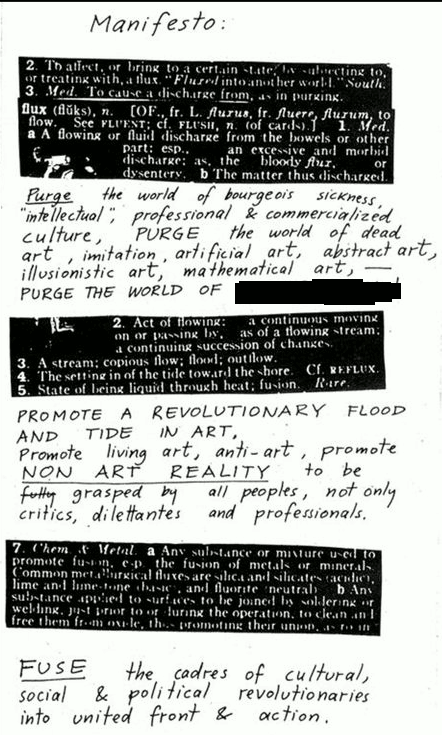 Manifesto:
2. To affect, or bring to a certain state, by subjecting to,
or treating with, a flux. "Fluxed into another world." South.
3. Med. To cause a discharge from, as in purging.
flux (flŭks), n. [OF., fr. L. fluxus, fr. fluere, fluxum, to
flow. See FLUENT; cf. FLUSH, n. (of cards).] 1. Med.
a A flowing or fluid discharge from the bowels or other
part: esp., an excessive and morbid
discharge: as, the bloody flux, or
dysentery. b The matter thus discharged.
Purge the world of bourgeois sickness,
"intellectual", professional & commercialized
culture, PURGE the world of dead
art, imitation, artificial art, abstract art,
illusionistic art, mathematical art, —
PURGE THE WORLD OF
2. Act of flowing: a continuous moving
on or passing by, as of a flowing stream;
a continuing succession of changes.
3. A stream; copious flow; flood; outflow.
4. The setting in of the tide toward the shore. Cf. REFLUX.
5. State of being liquid through heat; fusion. Rare.
PROMOTE A REVOLUTIONARY FLOOD
AND TIDE IN ART,
Promote living art, anti-art, promote
NON ART REALITY to be
fully grasped by all peoples, not only
critics, dilettantes and professionals.
7. Chem. & Metal. a Any substance or mixture used to
promote fusion, esp. the fusion of metals or minerals.
Common metallurgical fluxes are silica and silicates (acidic),
lime and limestone (basic), and fluorite (neutral). b Any
substance applied to surfaces to be joined by soldering or
welding, just prior to or during the operation, to clean and
free them from oxide, thus promoting their union, as rosin
FUSE the cadres of cultural,
social & political revolutionaries
into united front & action.